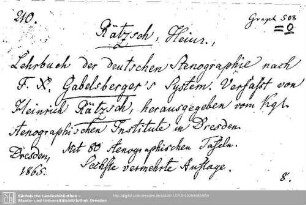 210.
Graph 508
= 9
Rätzsch, Heinr.,
Lehrbuch der deutschen Stenographie nach
F. X. Gabelsberger's System. Verfaßt von
Heinrich Rätzsch, herausgegeben vom kgl.
stenographischen Institute in Dresden.
Mit 80 stenographischen Tafeln.
Dresden,
1865.
Sechste vermehrte Auflage.
8.